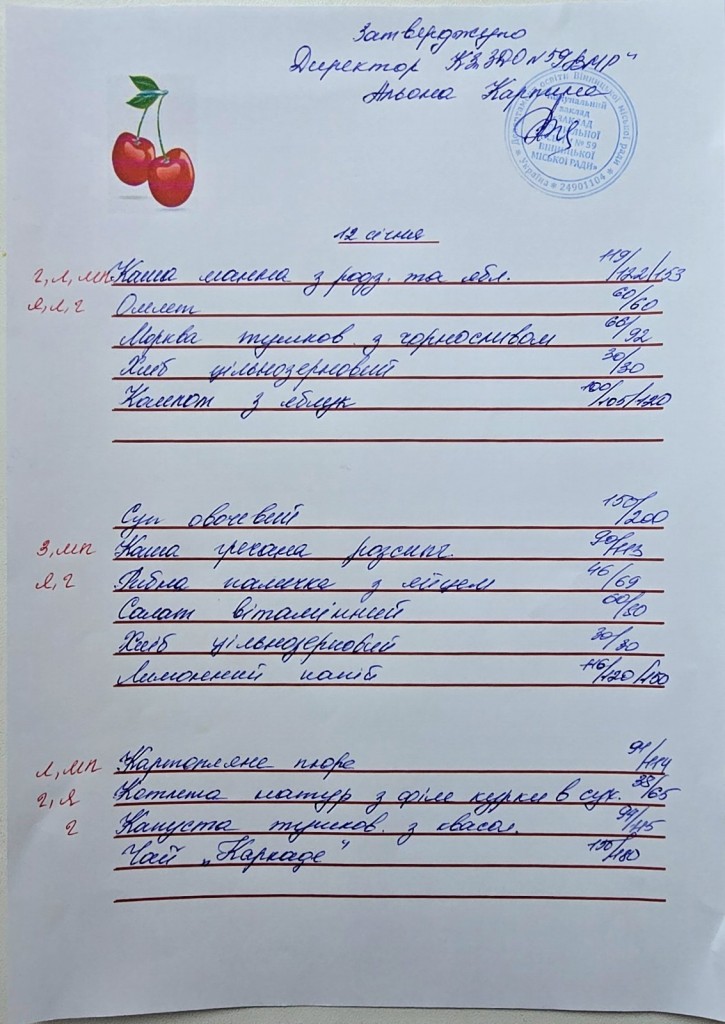 Затверджую
Директор КЗ „ЗДО №59 ВМР"
Альона Карпина
Департамент освіти Вінницької міської ради
Україна * 24901104 *
комунальний
заклад
№ 59
ВІННИЦЬКОЇ
МІСЬКОЇ РАДИ»
12 січня
г, л, мп Каша манна з родз. та ябл. 119/122/153
я, л, г Омлет 60/60
Морква тушков. з чорносливом 66/92
Хліб цільнозерновий 30/30
Компот з яблук 100/105/120
Суп овочевий 150/200
З, мп Каша гречана розсипч. 90/113
Я, г Рибна паличка з яйцем 46/69
Салат вітамінний 60/80
Хліб цільнозерновий 30/30
Лимонний напій 116/120/150
л, мп Картопляне пюре 91/114
г, я Котлета натур з філе курки в сух. 38/65
г Капуста тушков. з квасол. 94/115
Чай „Каркаде" 150/180